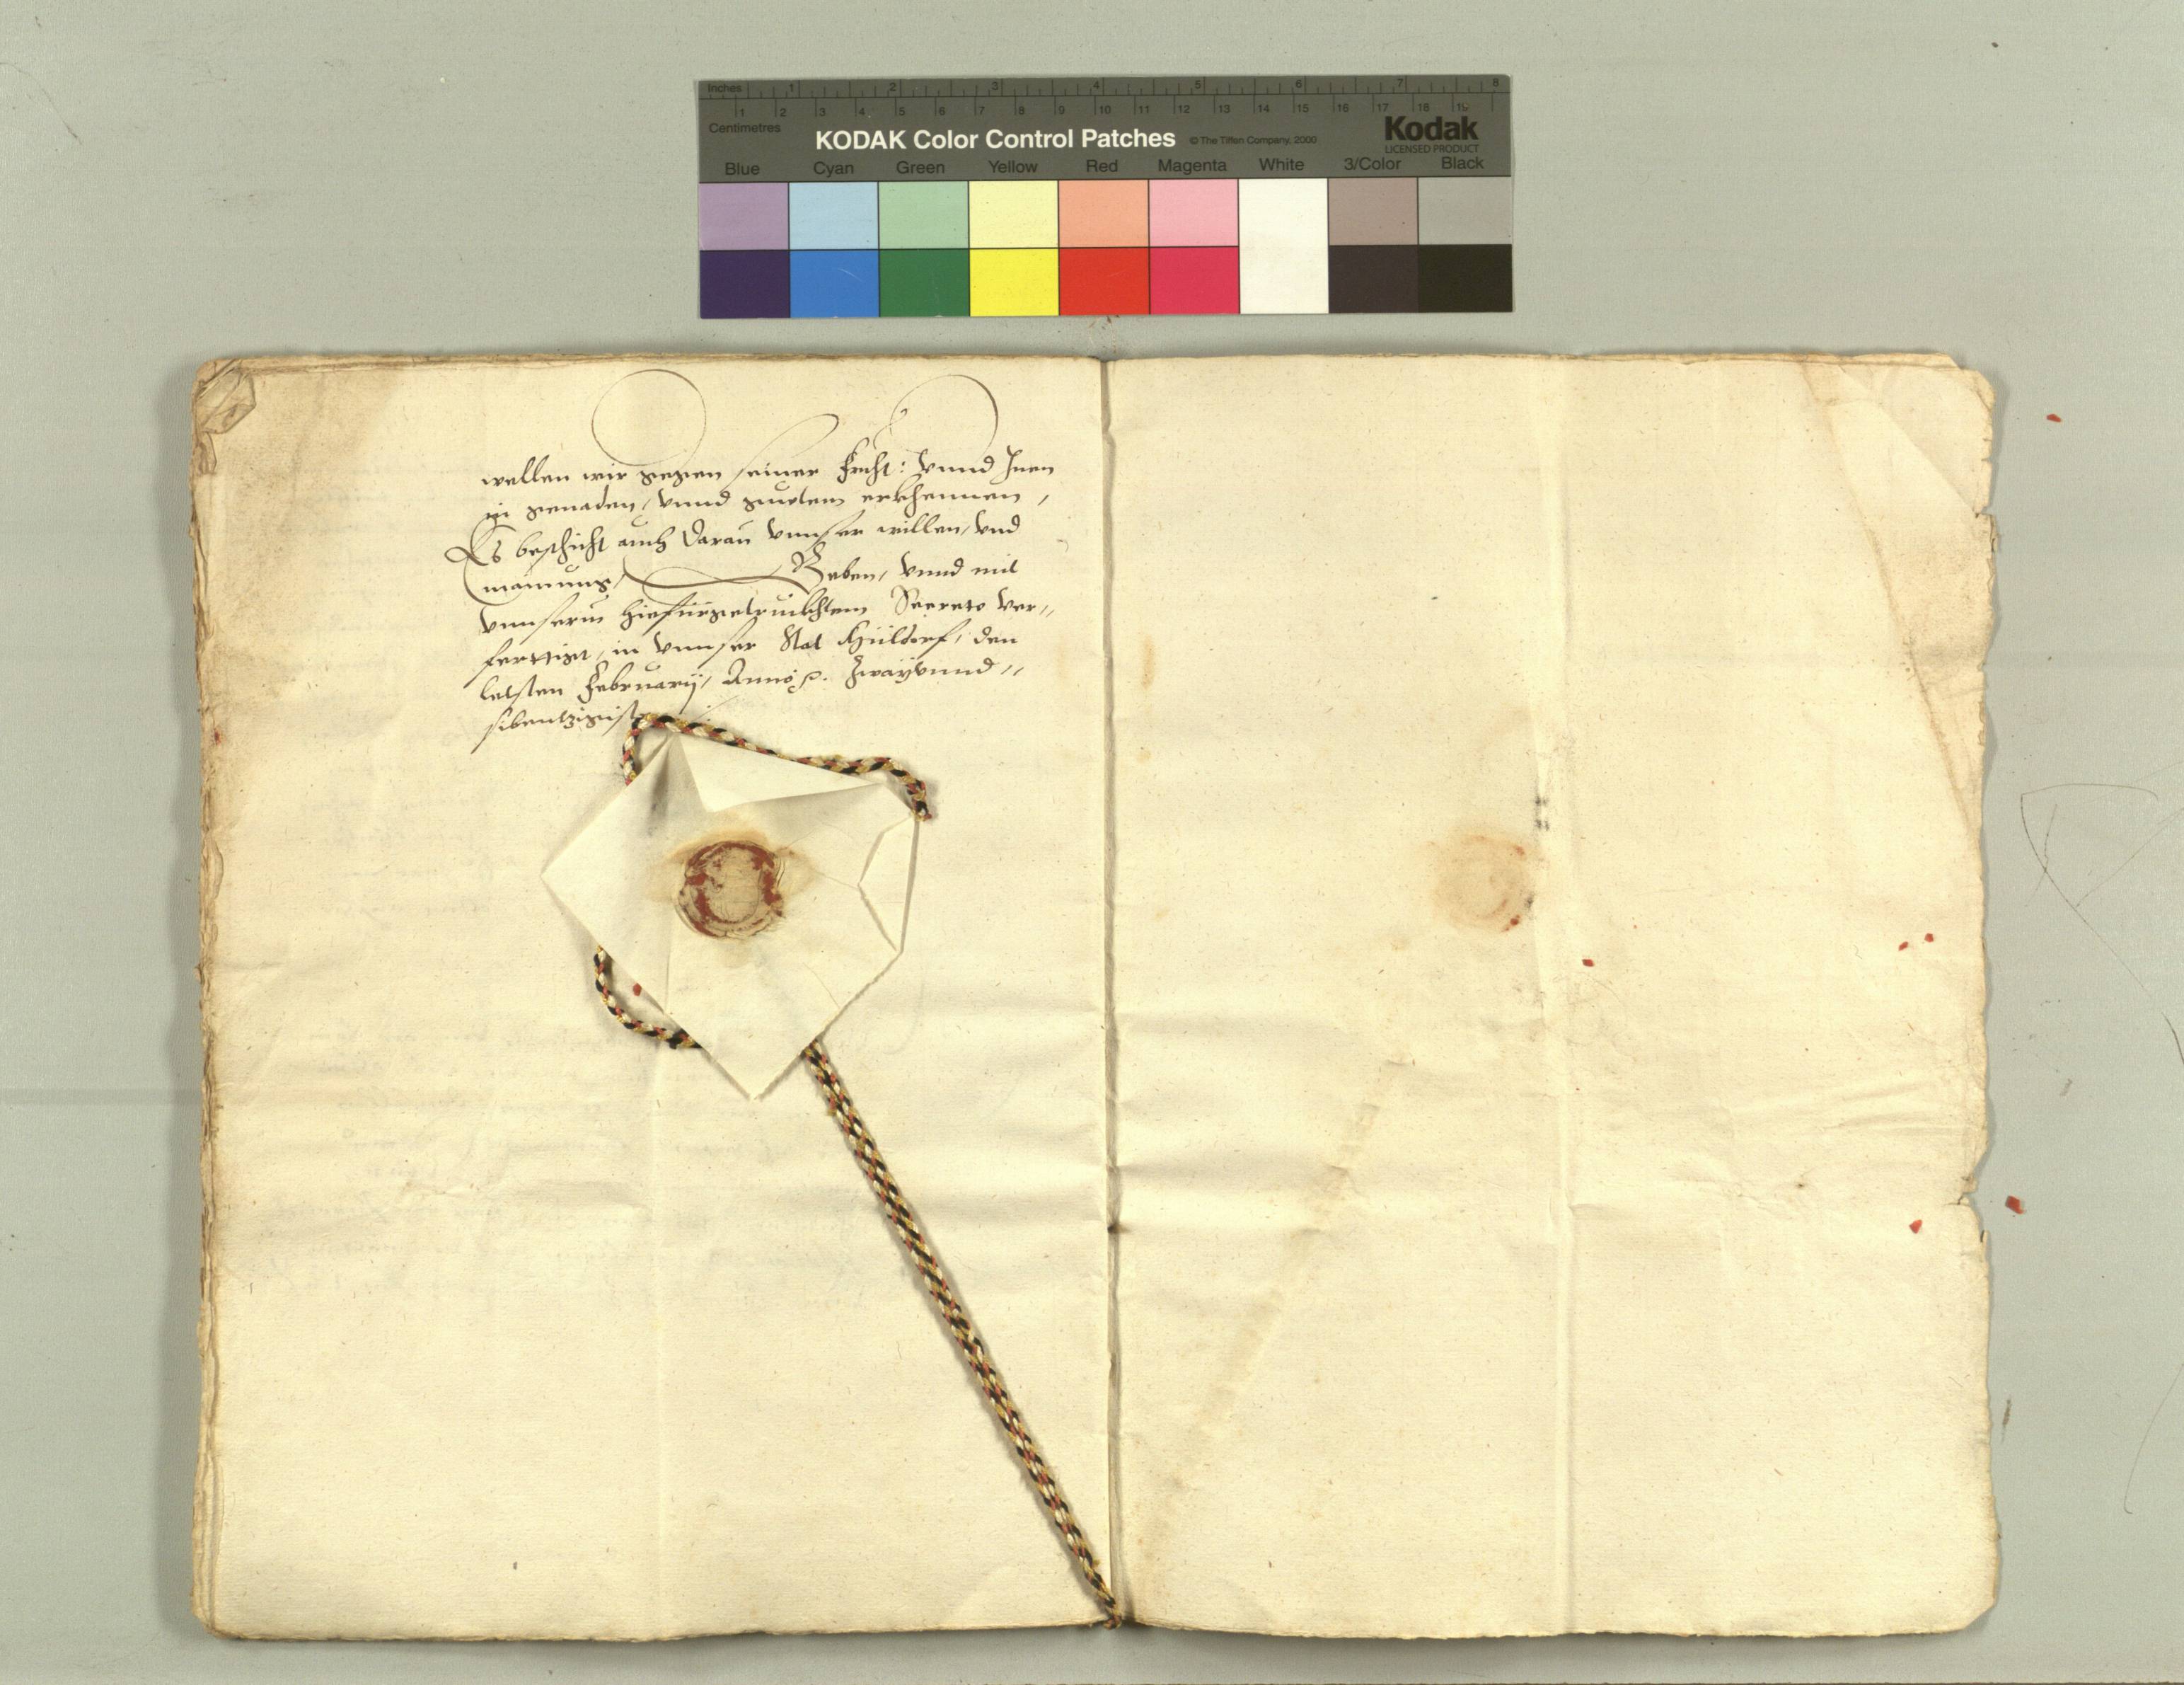 Inches 1 2 3 4 5 6 7 8
1 2 3 4 5 6 7 8 9 10 11 12 13 14 15 16 17 18 19
Centimetres
KODAK Color Control Patches © The Tiffen Company, 2000 Kodak
LICENSED PRODUCT
Blue Cyan Green Yellow Red Magenta White 3/Color Black
wellen wir gegen seiner : vnnd Inen
in genaden, vnnd guetem erkhennen,
Es beschicht auch daran vnnser willen, vnd
mainung, Geben, vnnd mit
vnnserm hiefürgetruckhtem Secrete ver„
fertigt, in vnnser Stat Müldorf, den
letsten February, Anno . Zwayvnnd„
sibentzigist